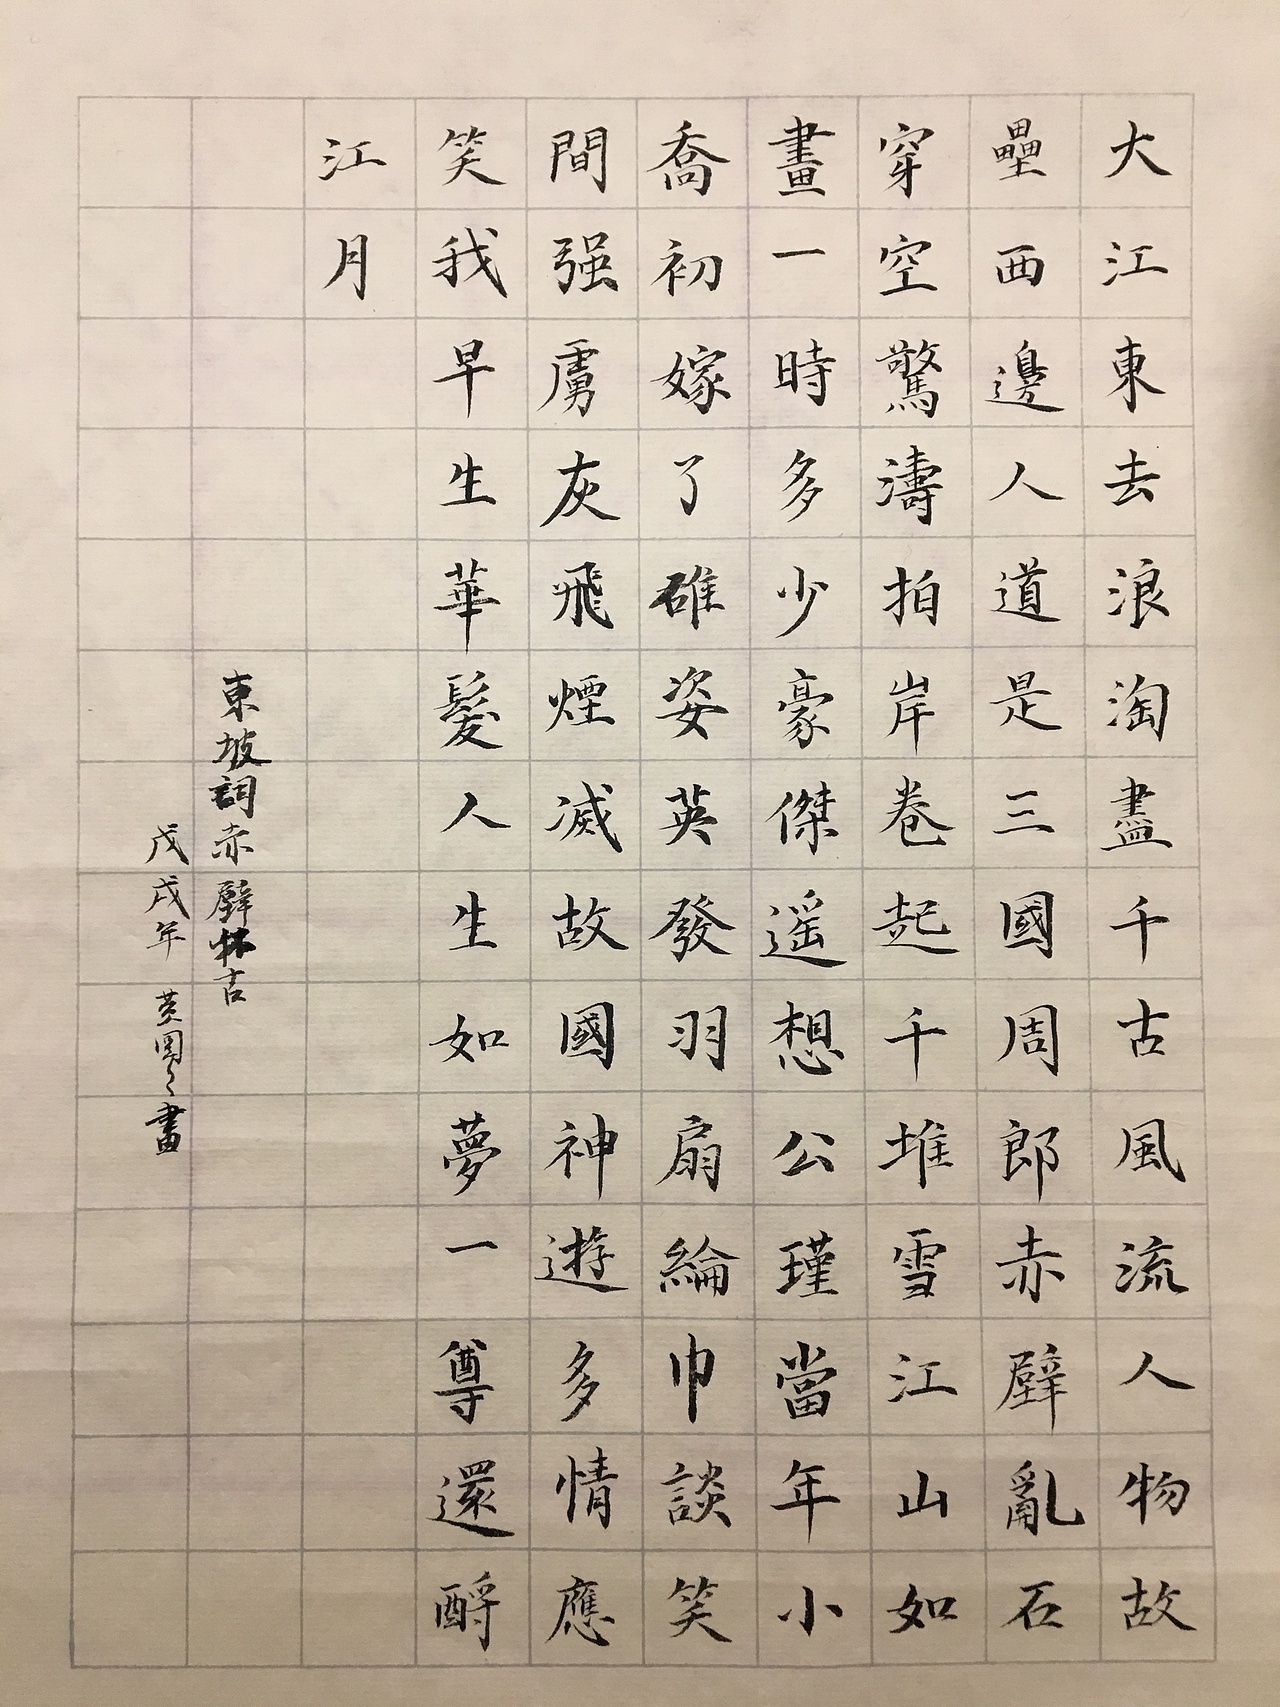 大江東去浪淘盡千古風流人物故
壘西邊人道是三國周郎赤壁亂石
穿空驚濤拍岸卷起千堆雪江山如
畫一時多少豪傑遥想公瑾當年小
喬初嫁了雄姿英發羽扇綸巾談笑
間强虜灰飛煙滅故國神遊多情應
笑我早生華髮人生如夢一尊還酹
江月
東坡詞赤壁懷古
戊戌年 書